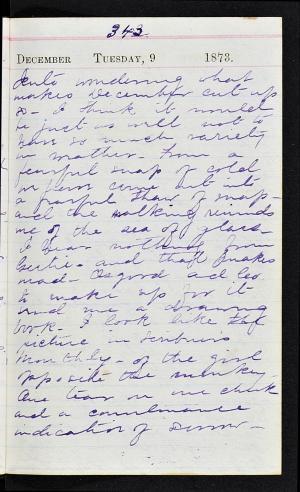 343
DECEMBER TUESDAY, 9 1873.
wondering what
makes December cut up
so - I think it would
be just as well not to
have so much variety
in weather. From a
fearful snap of cold
we have come out into
a fearful thaw of
and the walking reminds
me of the sea of glass -
I hear nothing from
Gertie - and that makes
mad - Osgood and Co.
to make up for it
send me a drawing
book. I look like the
picture in Scribners
Monthly - of the girl
opposite the monkey.
One tear on one cheek
and a countenance
indication of sorrow -